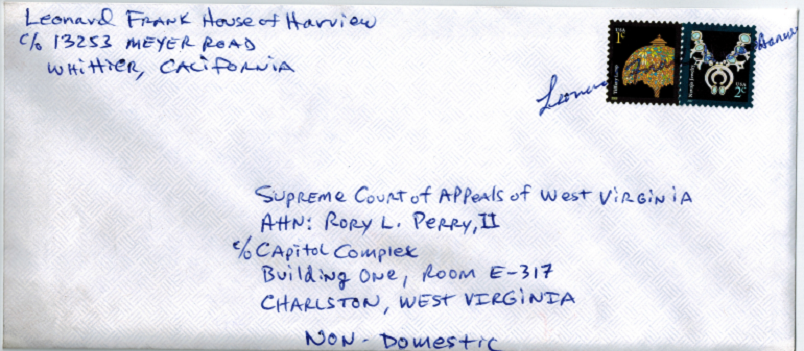 Leonard Frank House of Harview
c/o 13253 MEYER ROAD
WHITTIER, CALIFORNIA
USA 1c
USA 2c
Navajo Jewelry
Supreme Court of Appeals of West Virginia
Attn: Rory L. Perry, II
c/o Capitol Complex
Building One, Room E-317
CHARLSTON, WEST VIRGINIA
NON-Domestic